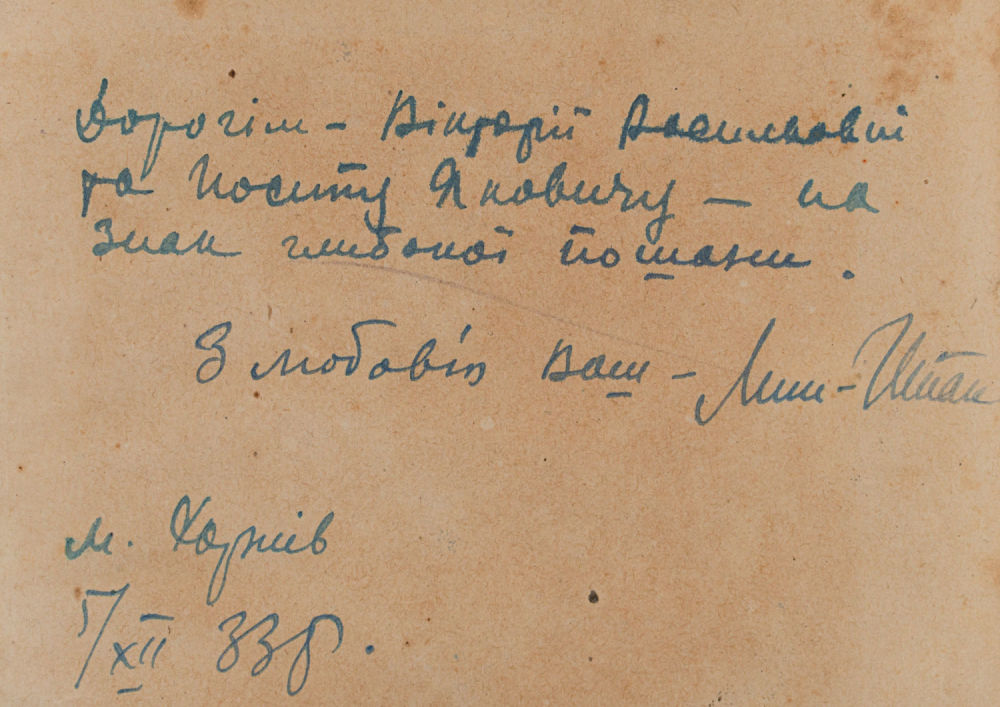 Дорогім – Вікторії Васильовні
та Йосипу Яковичу – на
знак глибокої пошани.
З любовію Ваш –
м. Харків
5/XII 33 р.